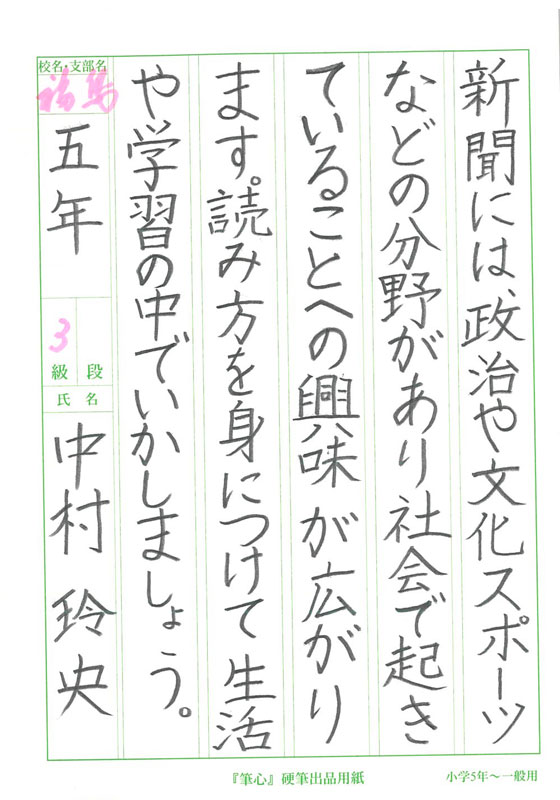 新聞には、政治や文化スポーツ
などの分野があり社会で起き
ていることへの興味が広がり
ます。読み方を身につけて生活
や学習の中でいかしましょう。
校名・支部名
五年
3
級 段
氏名
中村 玲央
『筆心』硬筆出品用紙
小学5年～一般用